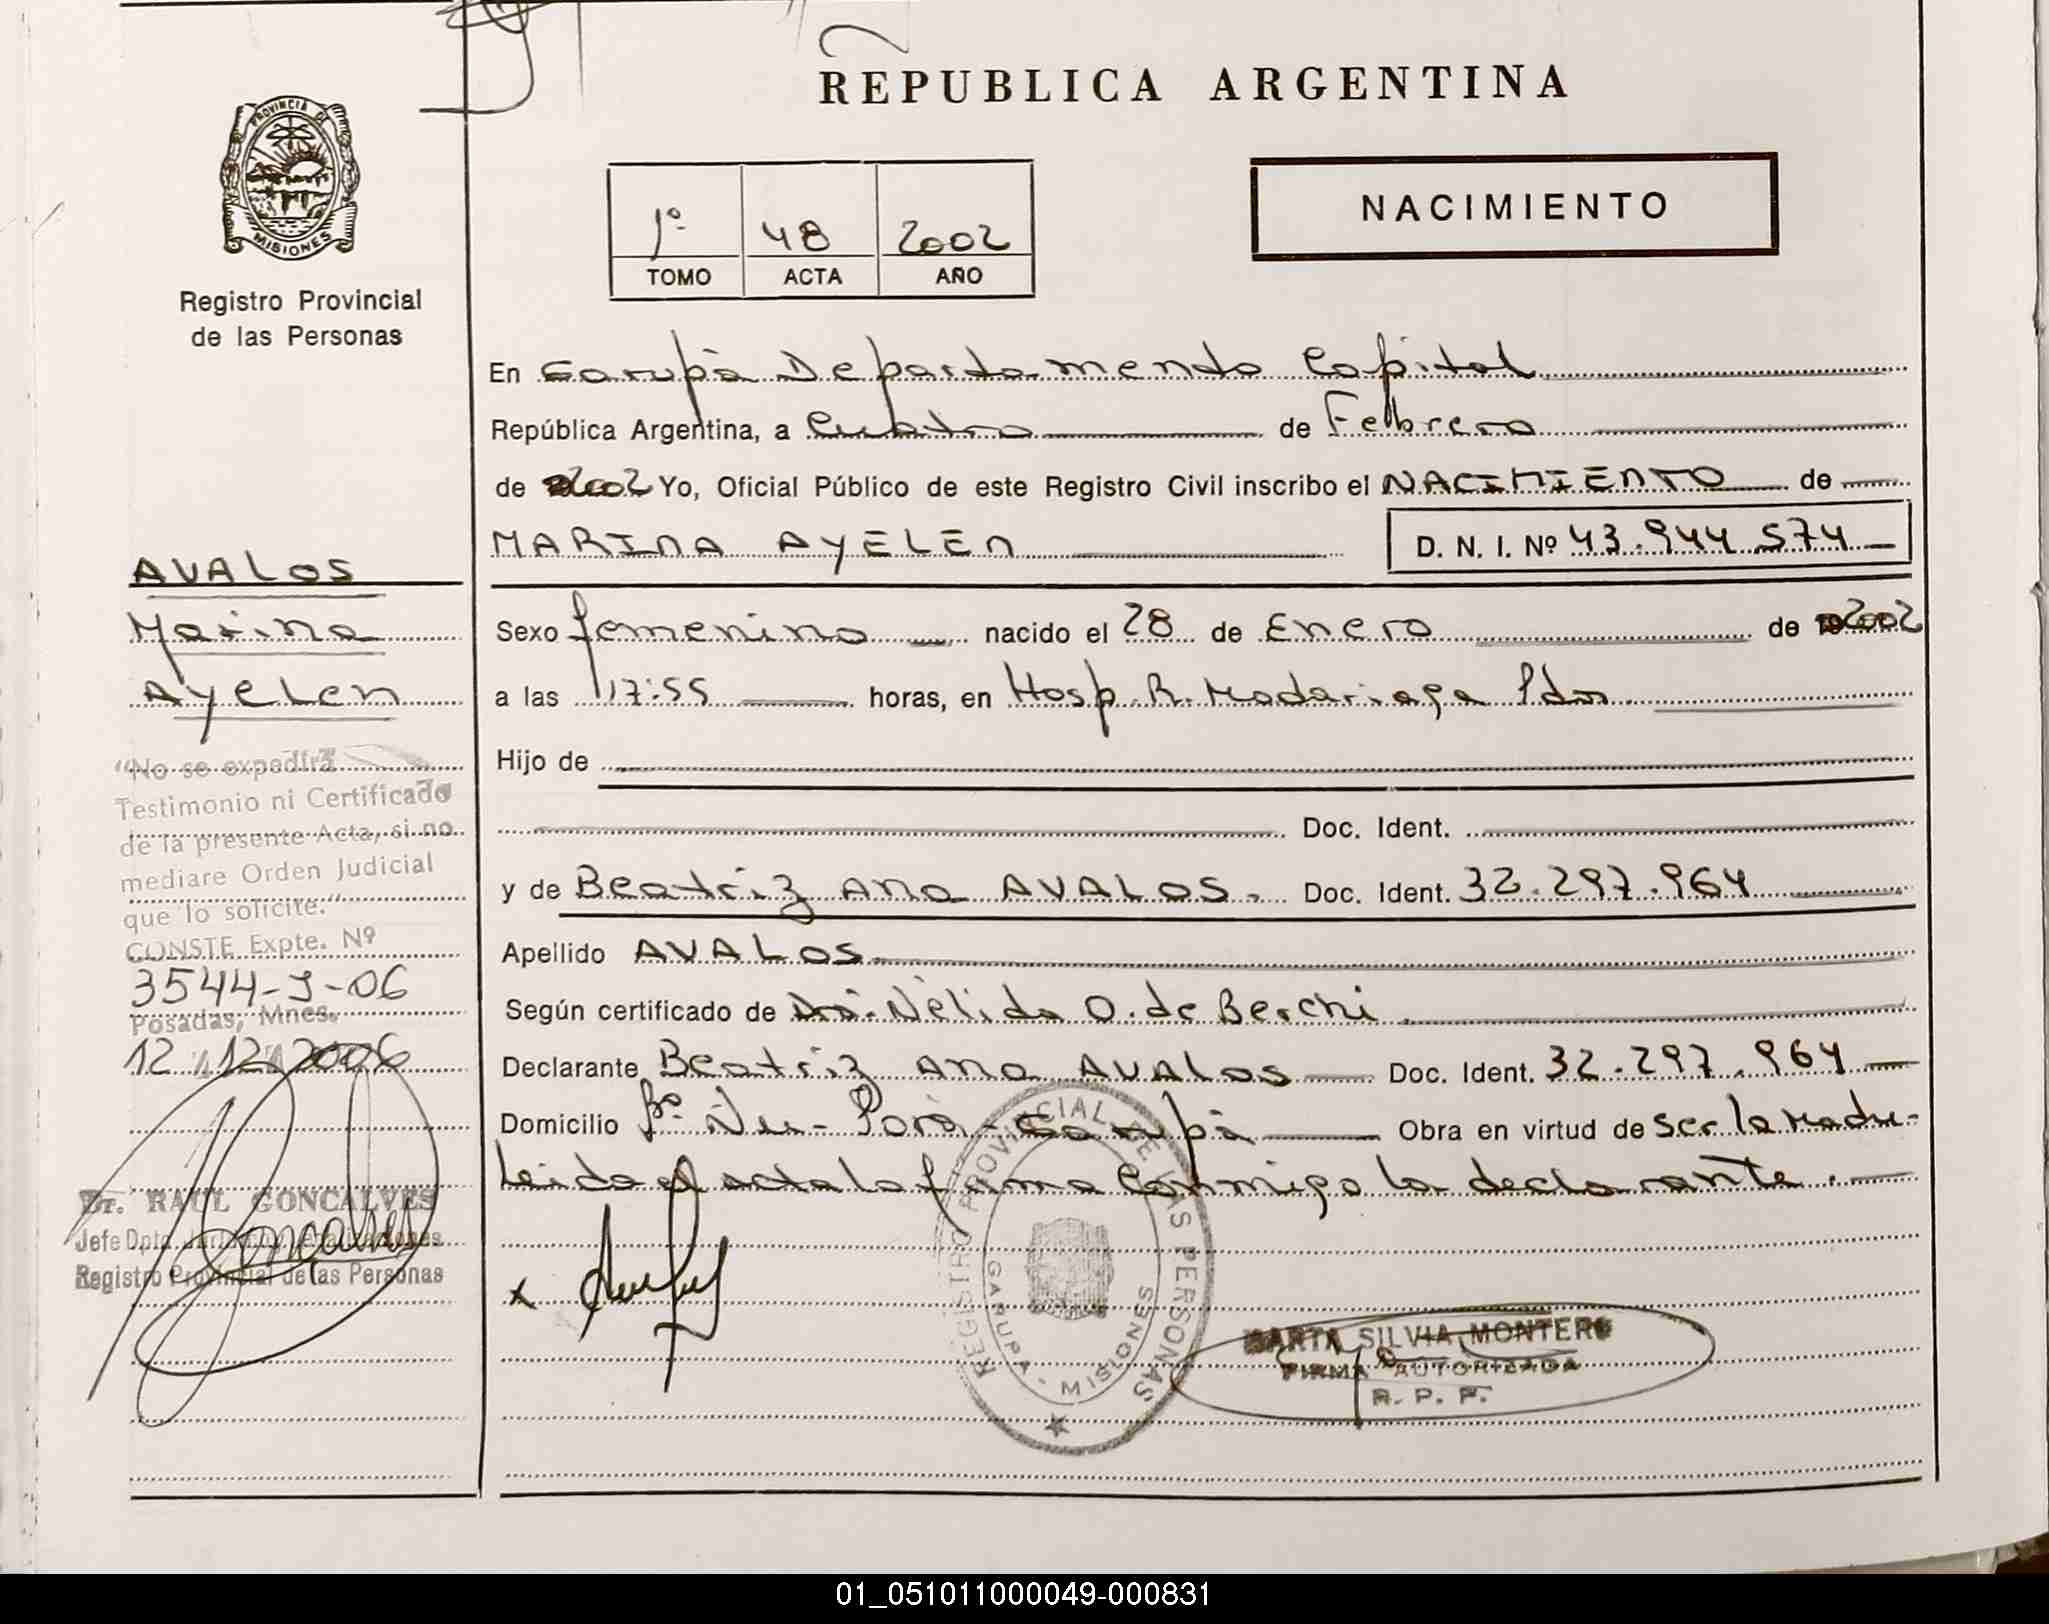 REPUBLICA ARGENTINA
PROVINCIA DE
MISIONES
Registro Provincial
de las Personas
1º 48 2002
TOMO ACTA AÑO
NACIMIENTO
En Garupá Departamento Capital
República Argentina, a Cuatro de Febrero
de 2002 Yo, Oficial Público de este Registro Civil inscribo el NACIMIENTO de
MARINA AYELEN D. N. I. Nº 43.944.574
Sexo femenino nacido el 28 de Enero de 2002
a las 17:55 horas, en Hosp. R. Madariaga Pdas.
Hijo de
Doc. Ident.
y de Beatriz Ana AVALOS. Doc. Ident. 32.297.964
Apellido AVALOS
Según certificado de Dra. Nélida O. de Berchi
Declarante Beatriz Ana AVALOS Doc. Ident. 32.297.964
Domicilio Bº Ñu-Porá-Garupá Obra en virtud de ser la madre-
Leida el acta la firma conmigo la declarante.
AVALOS
Marina
Ayelen
"No se expedirá
Testimonio ni Certificado
de la presente Acta, si no
mediare Orden Judicial
que lo solicite."
CONSTE Expte. Nº
3544-J-06
Posadas, Mnes.
12/12/2006
Dr. RAUL GONCALVES
Jefe Dpto.
Registro Provincial de las Personas
x
REGISTRO PROVINCIAL DE LAS PERSONAS
GARUPA - MISIONES
MARTA SILVIA MONTERO
FIRMA AUTORIZADA
R. P. P.
01_051011000049-000831